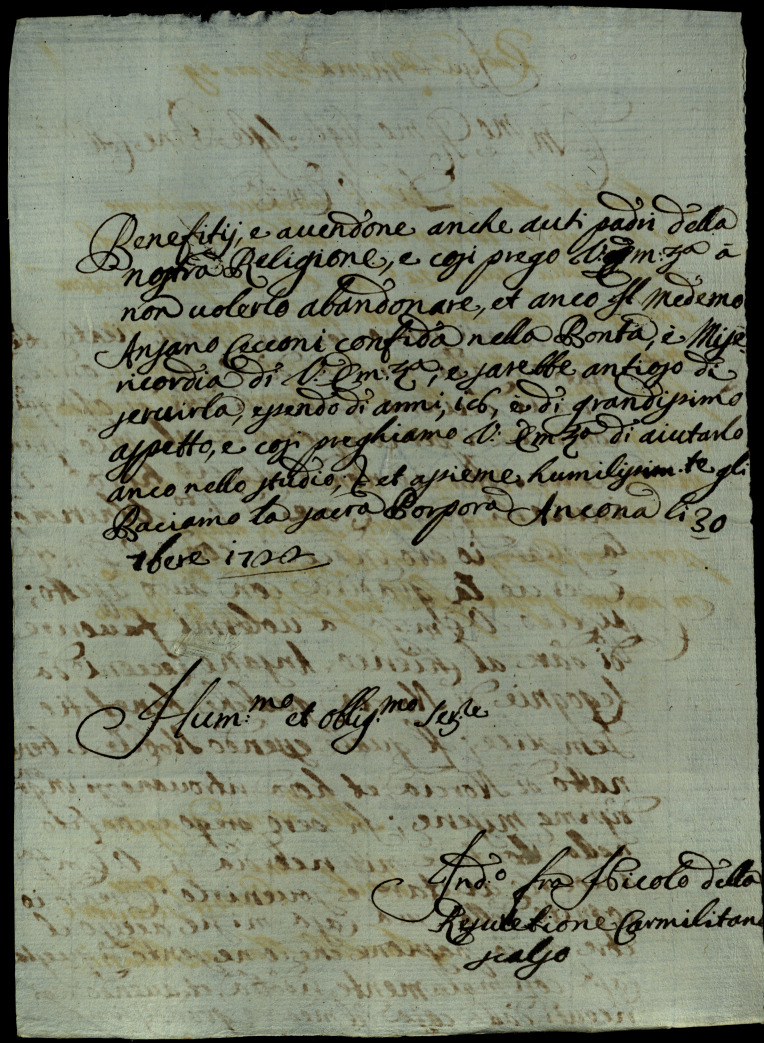 Benefitij, e avendone anche auti padri della
nostra Religione, e cosi prego V: Em:za à
non uolerlo abandonare, et anco Il Medemo
Ansano Cicconi confida nella Bontà, e Mise=
ricordia di V: Em:za; e sarebbe antioso di
seruirla, essendo di anni, 16, e di grandissimo
aspetto, e cosi preghiamo V: Emza di aiutarlo
anco nello studio, et assieme humilissim.te gli
Baciamo la sacra Porpora Ancona li 30
7bere 1722
Hum:mo et oblig.mo Ser:re
Ind:o fra Nicolo della
Resuretione Carmilitano
scalso